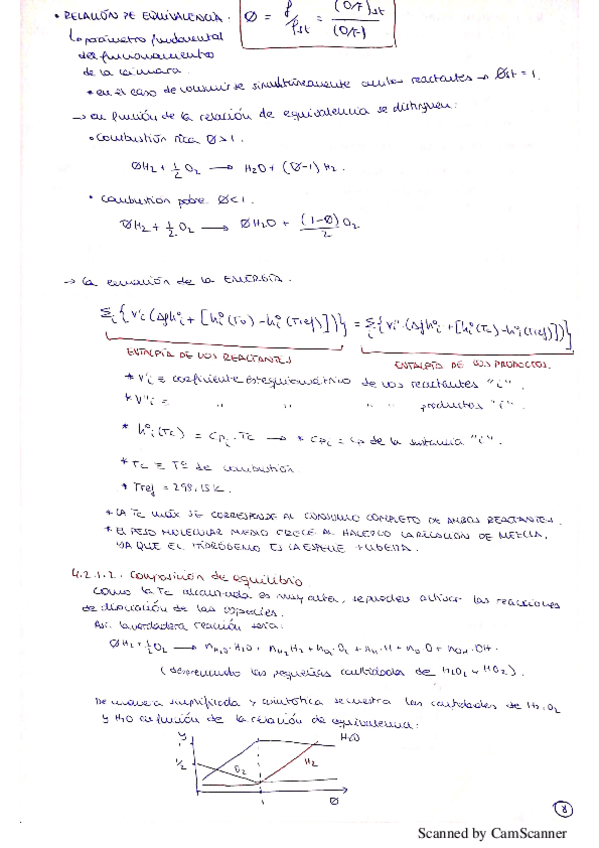 • RELACIÓN DE EQUIVALENCIA. Ø = f/fst = (O/F)st/(O/F)
↳ parámetro fundamental
del funcionamiento
de la cámara.
* en el caso de consumirse simultáneamente ambos reactantes → Øst = 1.
→ en función de la relación de equivalencia se distinguen:
• combustión rica Ø>1.
ØH₂ + ½ O₂ → H₂O + (Ø-1) H₂.
• combustión pobre Ø<1.
ØH₂ + ½ O₂ → ØH₂O + (1-Ø)/2 O₂.
→ la ecuación de la ENERGÍA.
Σi {ν'i (Δfh°i + [h°i(To) - h°i(Tref)])} = Σi {ν''i (Δfh°i + [h°i(Tc) - h°i(Tref)])}
ENTALPÍA DE LOS REACTANTES ENTALPÍA DE LOS PRODUCTOS.
* ν'i ≡ coeficiente estequiométrico de los reactantes "i".
* ν''i = " " " " productos "i".
* h°i(Tc) = Cpi · Tc → * Cpi = Cp de la sustancia "i".
* Tc ≡ Tª de combustión
* Tref = 298,15K.
* LA Tc MÁX SE CORRESPONDE AL CONSUMO COMPLETO DE AMBOS REACTANTES.
* EL PESO MOLECULAR MEDIO CRECE AL HACERLO LA RELACIÓN DE MEZCLA,
YA QUE EL HIDRÓGENO ES LA ESPECIE + LIGERA.
4.2.1.2. Composición de equilibrio
Como la Tc alcanzada es muy alta, se pueden activar las reacciones
de disociación de las especies.
Así, la verdadera reacción sería:
ØH₂ + ½ O₂ → nH₂O·H₂O + nH₂ H₂ + nO₂·O₂ + nH·H + nO O + nOH·OH.
(despreciando las pequeñas cantidades de H₂O₂ y HO₂).
De manera simplificada y asintótica se muestra las cantidades de H₂, O₂
y H₂O en función de la relación de equivalencia:
y
H₂O
1/2
O₂
H₂
1
Ø
8
Scanned by CamScanner